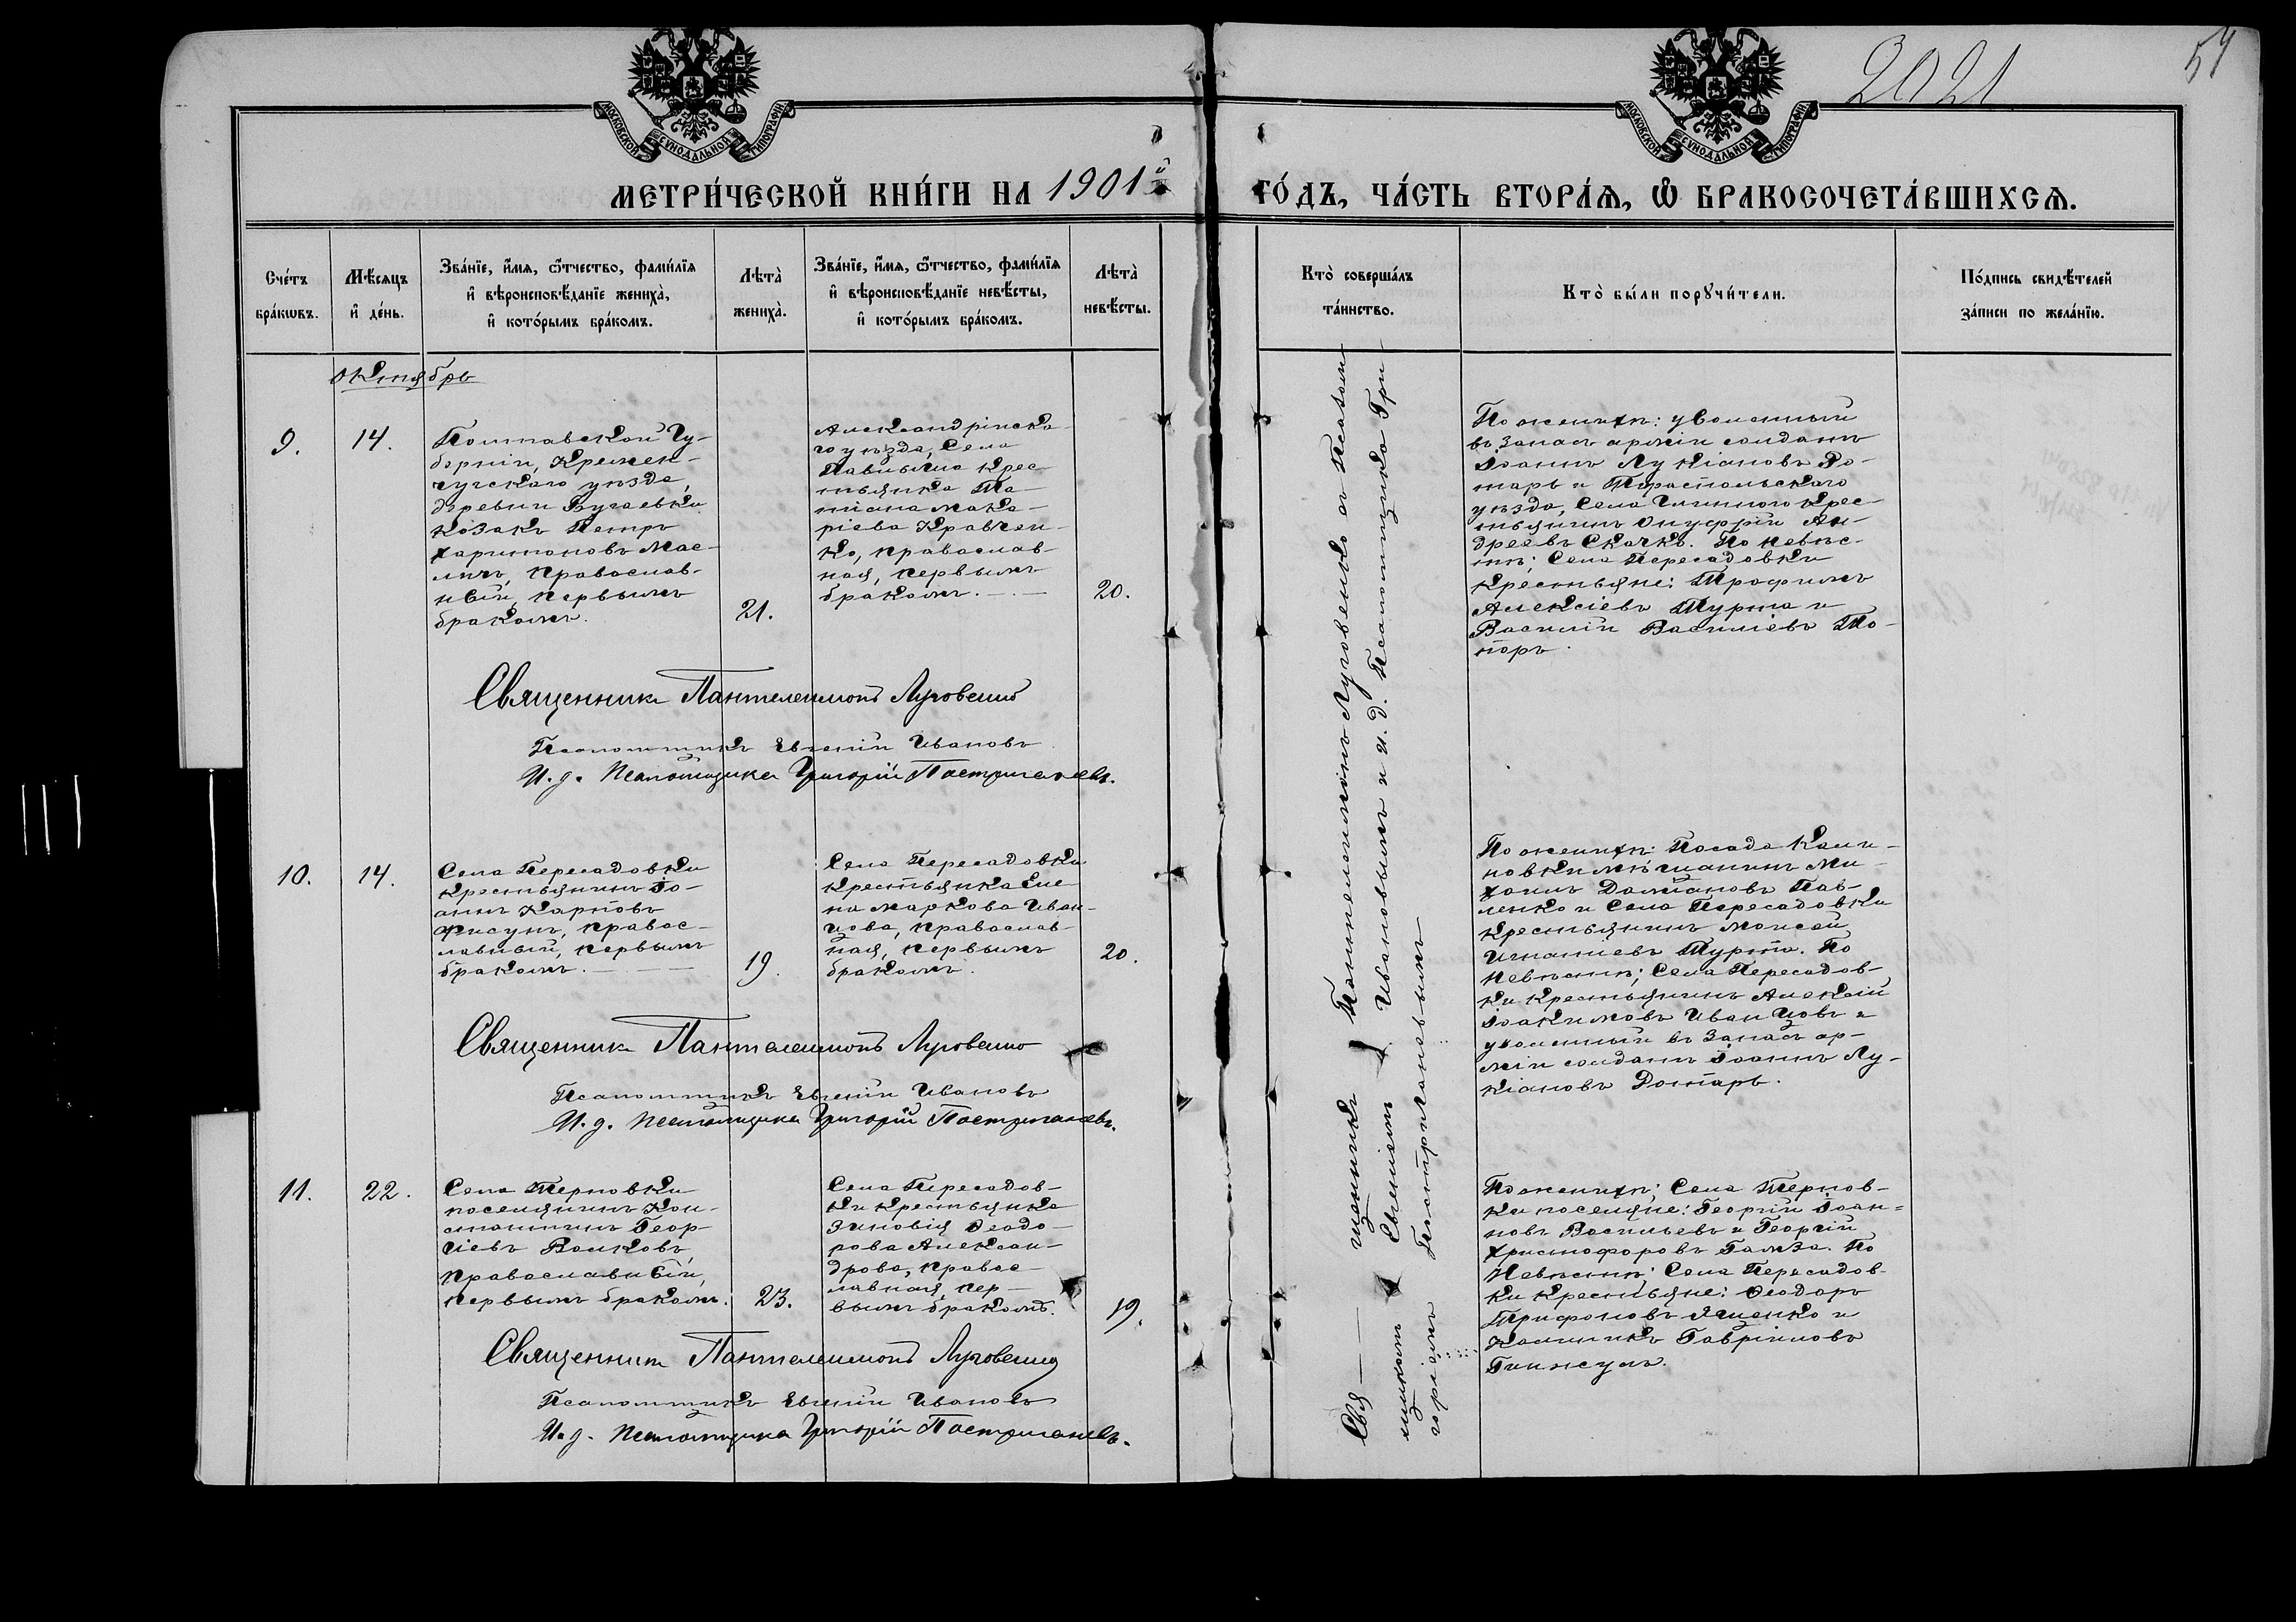 2021
54
МОСКОВСКОЙ СѴНОДАЛЬНОЙ ТИПОГРАФІИ
МОСКОВСКОЙ СѴНОДАЛЬНОЙ ТИПОГРАФІИ
МЕТРИ́ЧЕСКОЙ КНИ́ГИ НА 1901й
ГО́ДЪ, ЧА́СТЬ ВТОРА́Ѧ, Ѽ БРАКОСОЧЕТА́ВШИХСѦ.
Сче́тъ
бра́кѡвъ.
Мѣ́сѧцъ
и҆ де́нь.
Зва́нїе, и҆́мѧ, ѻ҆́тчество, фами́лїѧ
и҆ вѣроисповѣ́данїе жениха̀,
и҆ кото́рымъ бра́комъ.
Лѣта̀
жениха̀.
Зва́нїе, и҆́мѧ, ѻ҆́тчество, фами́лїѧ
и҆ вѣроисповѣ́данїе невѣ́сты,
и҆ кото́рымъ бра́комъ.
Лѣта̀
невѣ́сты.
Кто̀ соверша́лъ
та́инство.
Кто̀ бы́ли порꙋчи́тели.
По́дпись свидѣ́телей
за́писи по жела́нїю.
октябрь
9.
14.
Полтавской Гу-
берніи, Кремен-
чугскаго уѣзда,
деревни Бугаевки
козакъ Петръ
Харитоновъ Мас-
личъ, православ-
ный, первымъ
бракомъ.
21.
Александрійска-
го уѣзда, села
Павлыша крес-
тьянка Та-
тіана Мака-
ріева Кравчен-
ко, православ-
ная, первымъ
бракомъ.
20.
По женихѣ: уволенный
въ запасъ арміи солдатъ
Іоаннъ Лукіановъ Ро-
тарь и Тираспольскаго
уѣзда, села Глинного крес-
тьянинъ Онуфрій Ан-
дреевъ Скачкъ. По невѣс-
тѣ; села Пересадовки
крестьяне: Трофимъ
Алексіевъ Турта и
Василій Василіевъ То-
поръ.
Священникъ Пантелеимонъ Луговенко
Псаломщикъ Евгеній Ивановъ
И. д. псаломщика Григорій Пастригановъ.
10.
14.
Села Пересадовки
крестьянинъ Іо-
аннъ Карповъ
Фисунъ, правос-
лавный, первымъ
бракомъ.
19.
Села Пересадовки
крестьянка Еле-
на Маркова Иван-
цова, православ-
ная, первымъ
бракомъ.
20.
По женихѣ: Посада Кали-
новки мѣщанинъ Ми-
хаилъ Даміановъ Пав-
ленко и села Пересадовки
крестьянинъ Моисей
Игнатіевъ Турта. По
невѣстѣ; села Пересадов-
ки крестьянинъ Алексій
Іоакимовъ Иванцовъ и
уволенный въ запасъ ар-
міи солдатъ Іоаннъ Лу-
кіановъ Ротарь.
Священникъ Пантелеимонъ Луговенко
Псаломщикъ Евгеній Ивановъ
И. д. псаломщика Григорій Пастригановъ.
11.
22.
Села Терновки
поселянинъ Кон-
стантинъ Геор-
гіевъ Волковъ,
православный,
первымъ бракомъ.
23.
Села Пересадов-
ки крестьянка
Зиновія Ѳеодо-
рова Алексан-
дрова, правос-
лавная, пер-
вымъ бракомъ.
19.
По женихѣ; села Тернов-
ки поселяне: Георгій Іоан-
новъ Васильевъ и Георгій
Христофоровъ Гамза. По
невѣстѣ; села Пересадов-
ки крестьяне: Ѳеодоръ
Трифоновъ Ященко и
Гавріиловъ
Священникъ Пантелеимонъ Луговенко
Псаломщикъ Евгеній Ивановъ
И. д. псаломщика Григорій Пастригановъ.
Священникъ Пантелеимонъ Луговенко съ псалом-
щикомъ Евгеніемъ Ивановымъ и и. д. псаломщика Гри-
горіемъ Пастригановымъ